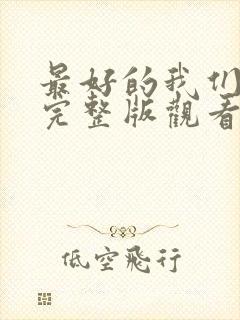 最好的我们
完整版觀看
低空飛行